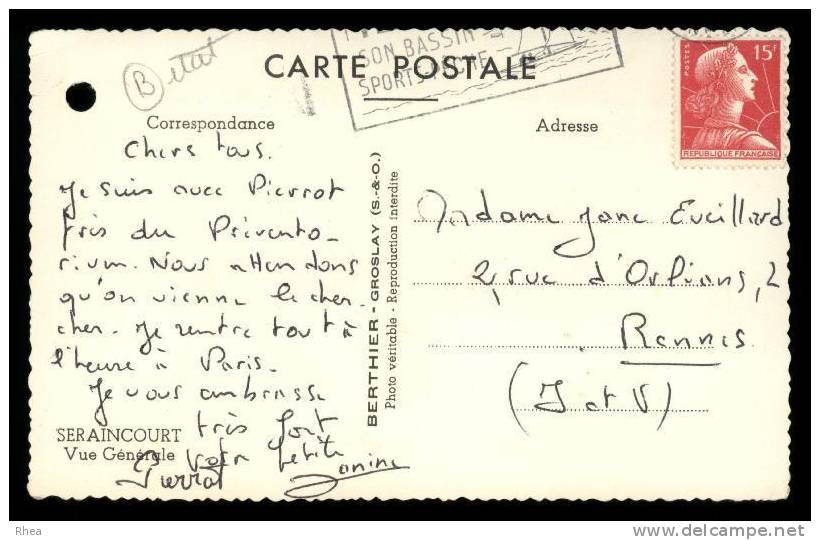 B état
SON BASSIN
CARTE POSTALE
POSTES 15F
REPUBLIQUE FRANÇAISE
Correspondance
Chers tous.
Je suis avec Pierrot
près du Prévento-
rium. Nous attendons
qu'on vienne le cher-
cher. Je rentre tout à
l'heure à Paris.
Je vous embrasse
très fort
Votre petite
Janine
Pierrot
SERAINCOURT
Vue Générale
BERTHIER - GROSLAY (S.-&-O.)
Photo véritable - Reproduction interdite
Adresse
Madame Jane Eveillard
2, rue d'Orléans, 2
Rennes
(I et V)
Rhea
delcampe.net